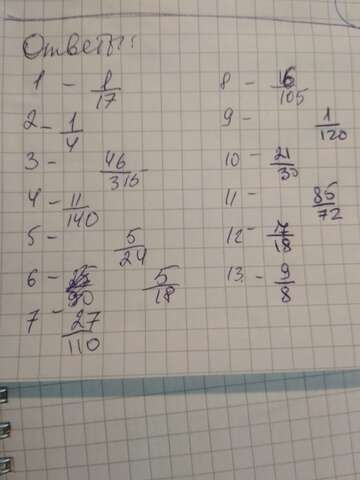 Ответы:
1 - 1/17
2 - 1/4
3 - 46/315
4 - 11/140
5 - 5/24
6 - 5/18
7 - 27/110
8 - 16/105
9 - 1/120
10 - 21/30
11 - 85/72
12 - 17/18
13 - 9/8